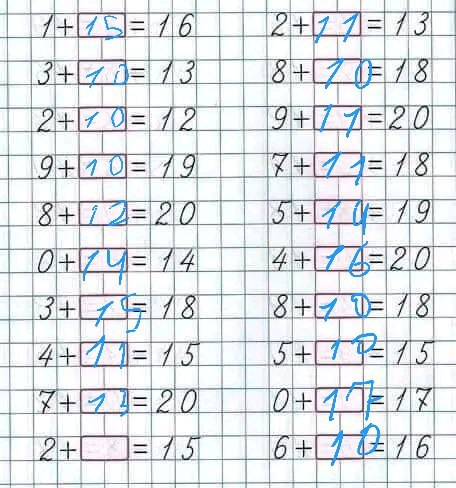 1+15=16 2+11=13
3+10=13 8+10=18
2+10=12 9+11=20
9+10=19 7+11=18
8+12=20 5+14=19
0+14=14 4+16=20
3+15=18 8+10=18
4+11=15 5+10=15
7+13=20 0+17=17
2+ =15 6+10=16